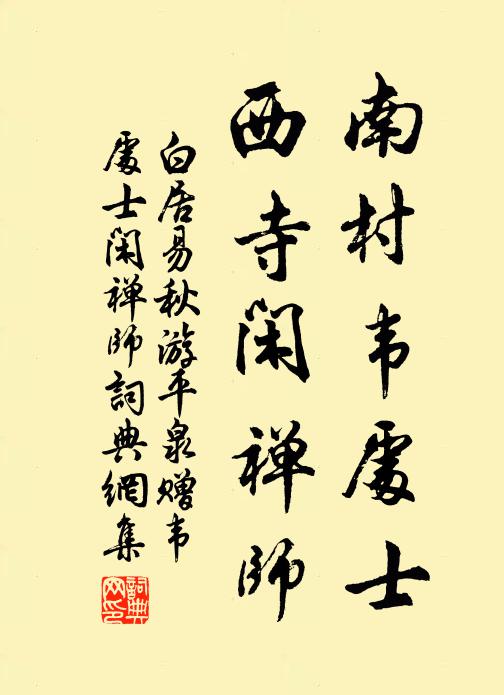 南村韦處士
西寺闲禅师
白居易秋游平泉赠韦
處士闲禅师詞典網集
詞典网印